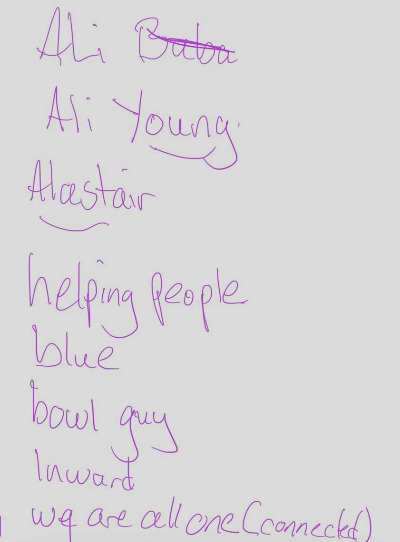 Ali Baba
Ali Young.
Alastair
helping people
blue
bowl guy
Inward
we are all one (connected)